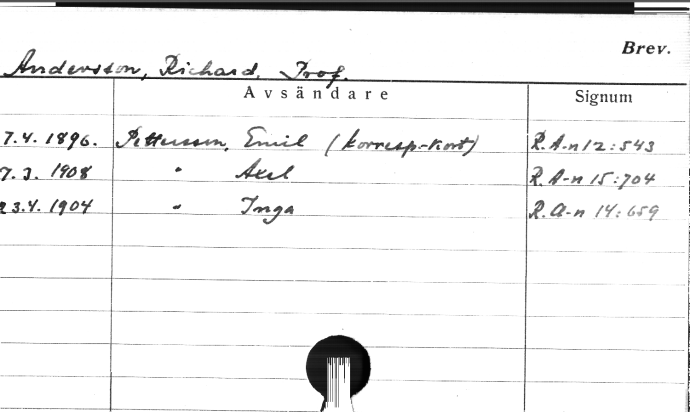 Brev.
Andersson, Richard, Prof.
Avsändare Signum
7.4. 1896. Pettersson, Emil (korresp.-kort) R.A-n 12:543
7.3. 1908 " Axel R.A-n 15:704
23.4. 1904 " Inga R.A-n 14:659